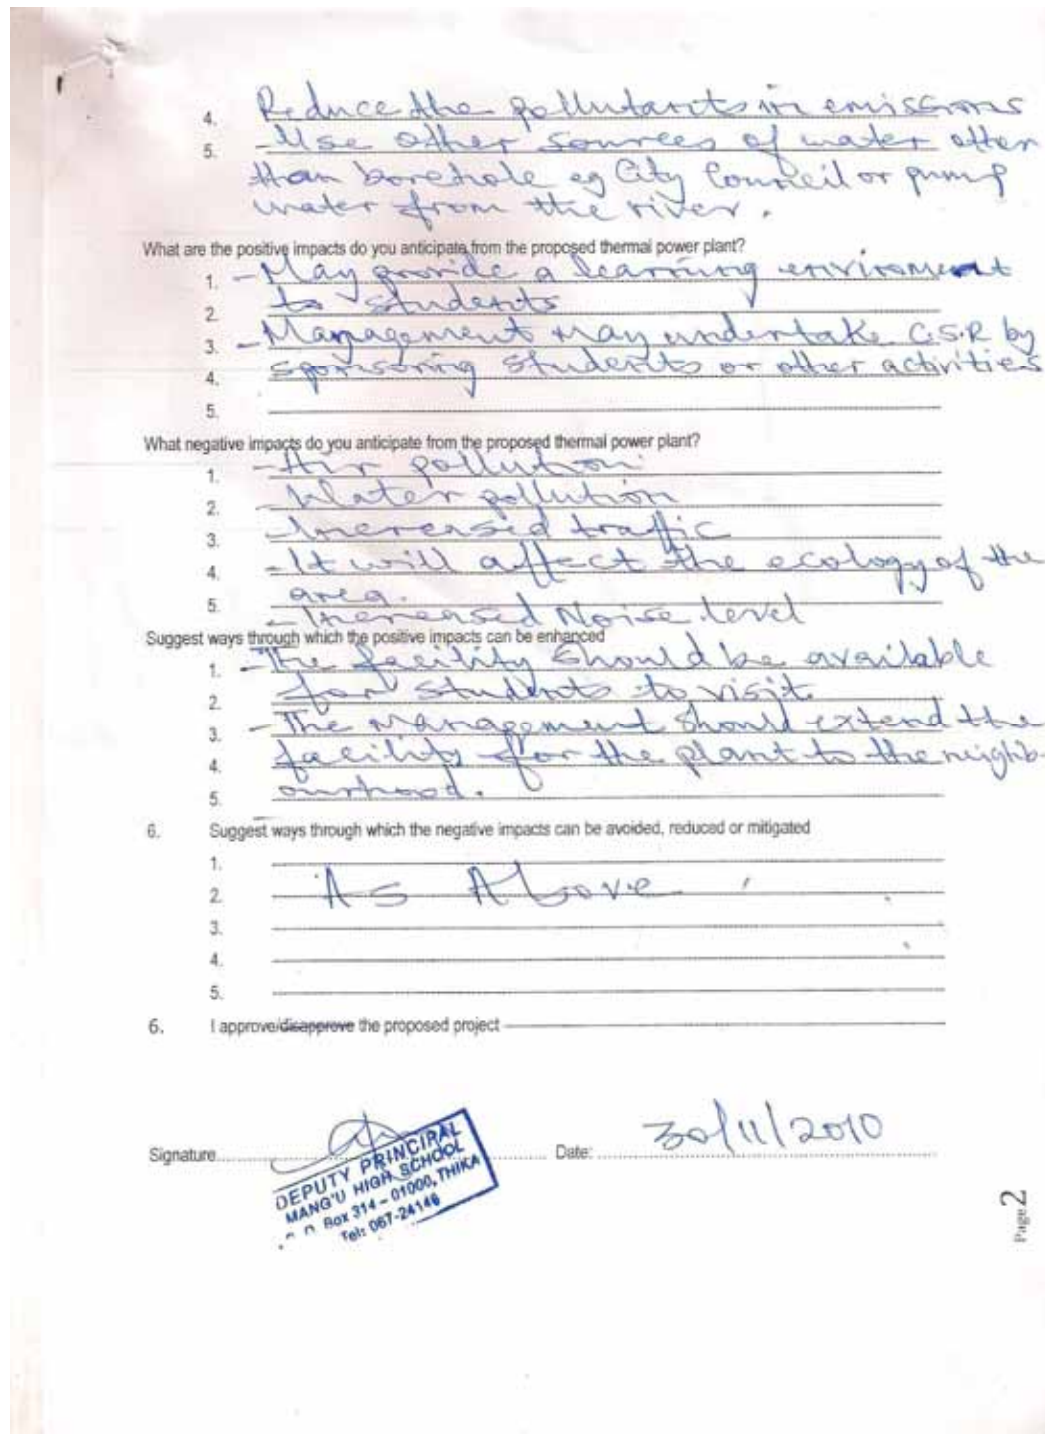 4. Reduce the pollutants in emissions
5. -Use other sources of water other
than borehole eg City Council or pump
water from the river.
What are the positive impacts do you anticipate from the proposed thermal power plant?
1. -May provide a learning enviroment
2. to students
3. -Management may undertake C.S.R by
4. sponsoring students or other activities
5.
What negative impacts do you anticipate from the proposed thermal power plant?
1. -Air pollution
2. -Water pollution
3. -Increased traffic
4. -It will affect the ecology of the
5. area.
-Increased Noise level
Suggest ways through which the positive impacts can be enhanced
1. -The facility should be available
2. for students to visit.
3. -The management should extend the
4. facility for the plant to the neighb-
5. ourhood.
6. Suggest ways through which the negative impacts can be avoided, reduced or mitigated
1.
2. As Above
3.
4.
5.
6. I approve/disapprove the proposed project
Signature
Date: 30/11/2010
DEPUTY PRINCIPAL
MANG'U HIGH SCHOOL
Box 314 - 01000, THIKA
Tel: 067-24146
Page 2